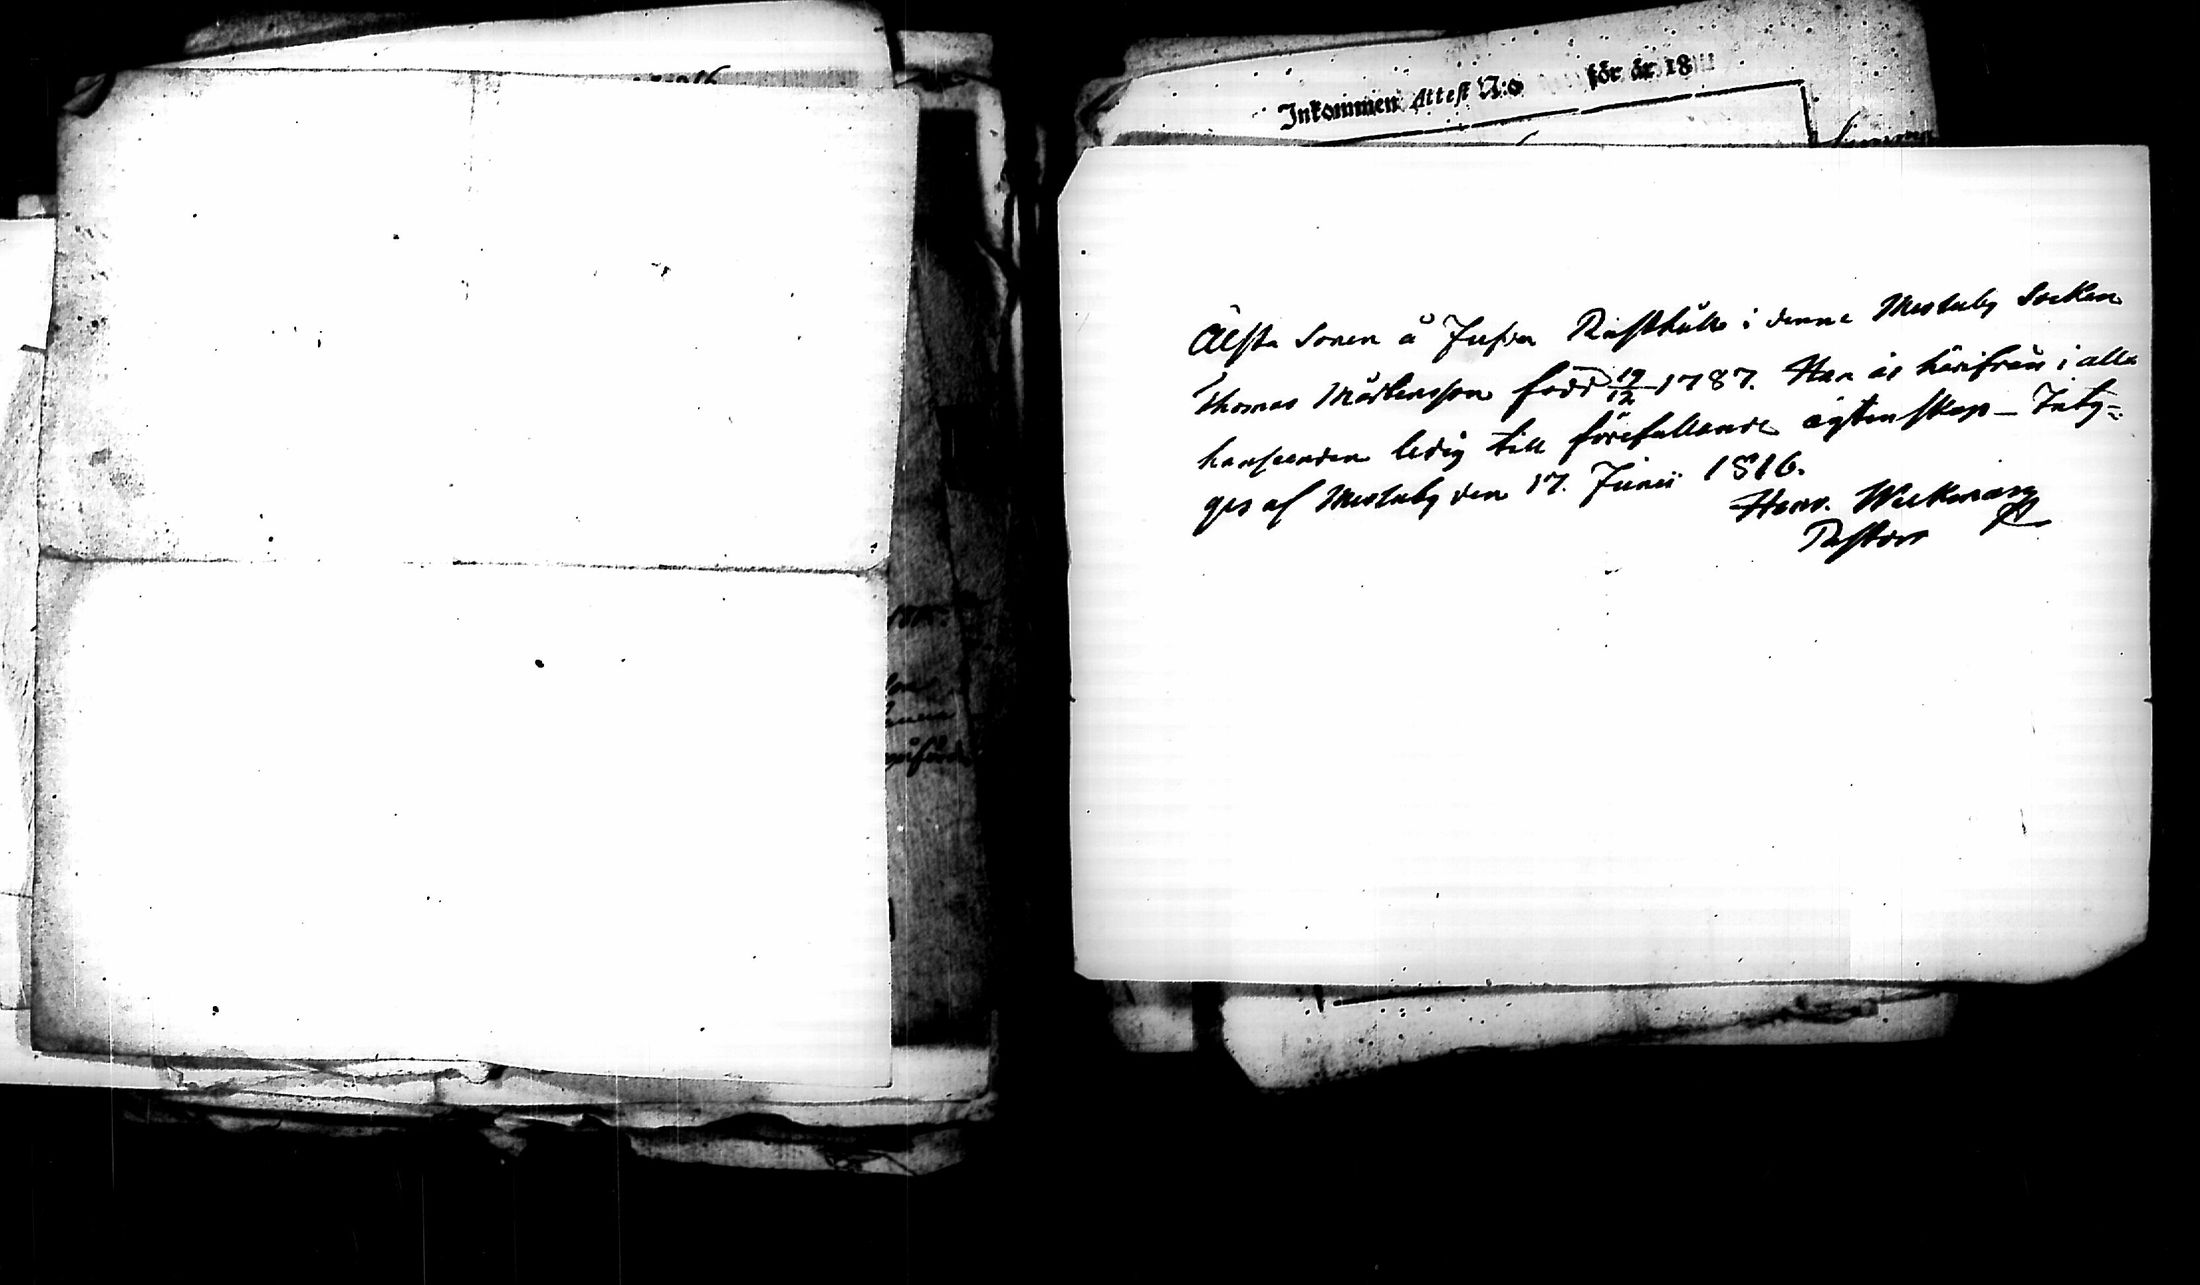 Inkommen Attest N:o för år 18
Älsta Sonen å Jufra Rusthåll i denne Mestuby Socken
Thomas Mårtensson född 19/12 1787. Han är härifrån i alla
hanseenden ledig till förefallande ägtenskap — Inty-
ges af Mestuby den 17. Junii 1816.
Henr. Weckman
Pastor